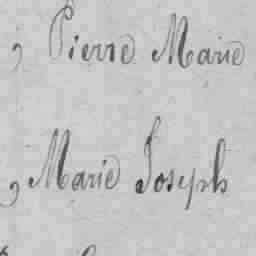 , Pierre Marie
, Marie Joseph